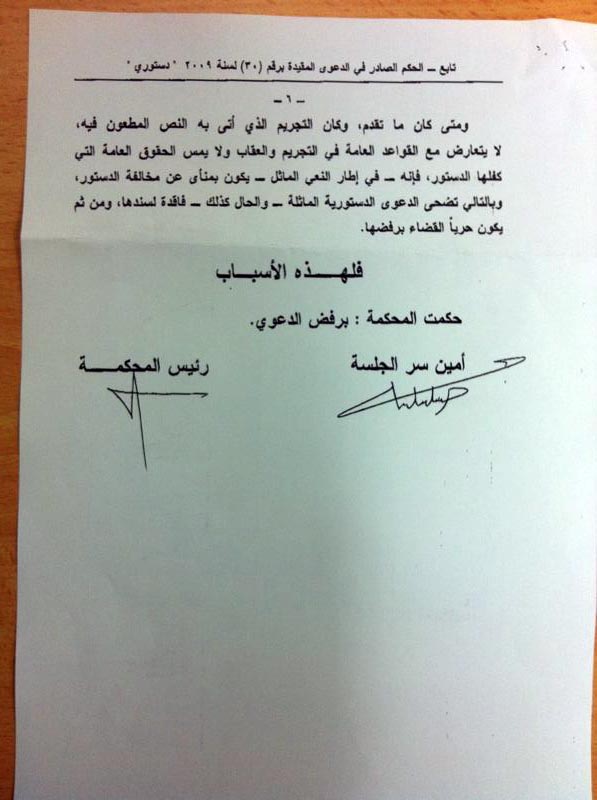 تابع ــ الحكم الصادر في الدعوى المقيدة برقم (٣٠) لسنة ٢٠٠٩ " دستوري "
ــ ٦ ــ
ومتى كان ما تقدم، وكان التجريم الذي أتى به النص المطعون فيه،
لا يتعارض مع القواعد العامة في التجريم والعقاب ولا يمس الحقوق العامة التي
كفلها الدستور، فإنه ــ في إطار النعي الماثل ــ يكون بمنأى عن مخالفة الدستور،
وبالتالي تضحى الدعوى الدستورية الماثلة ــ والحال كذلك ــ فاقدة لسندها، ومن ثم
يكون حرياً القضاء برفضها.
فلهــــذه الأسبــــاب
حكمت المحكمة : برفض الدعوي.
أمين سر الجلسة
رئيس المحكمــــة